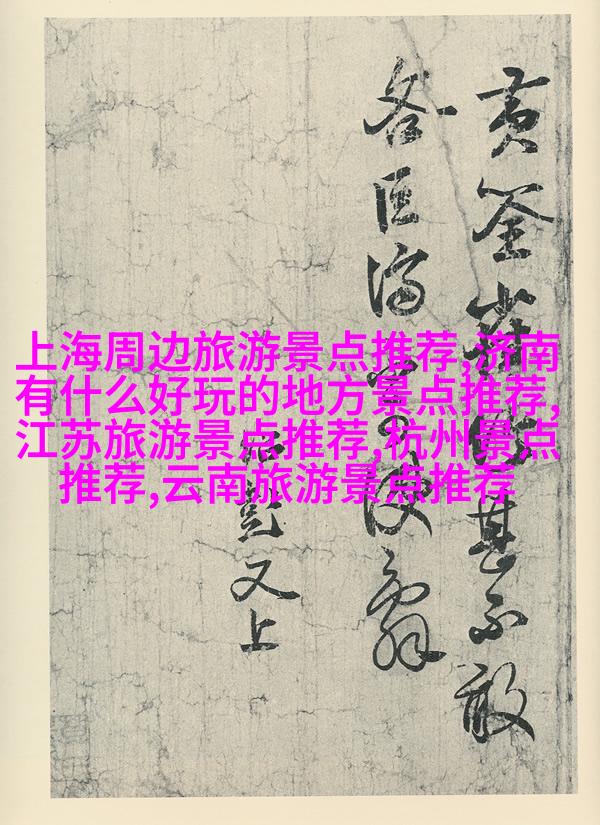 上海周边旅游景点推荐,济南
有什么好玩的地方景点推荐,
江苏旅游景点推荐,杭州景点
推荐,云南旅游景点推荐
黄筌甚不敢
又上